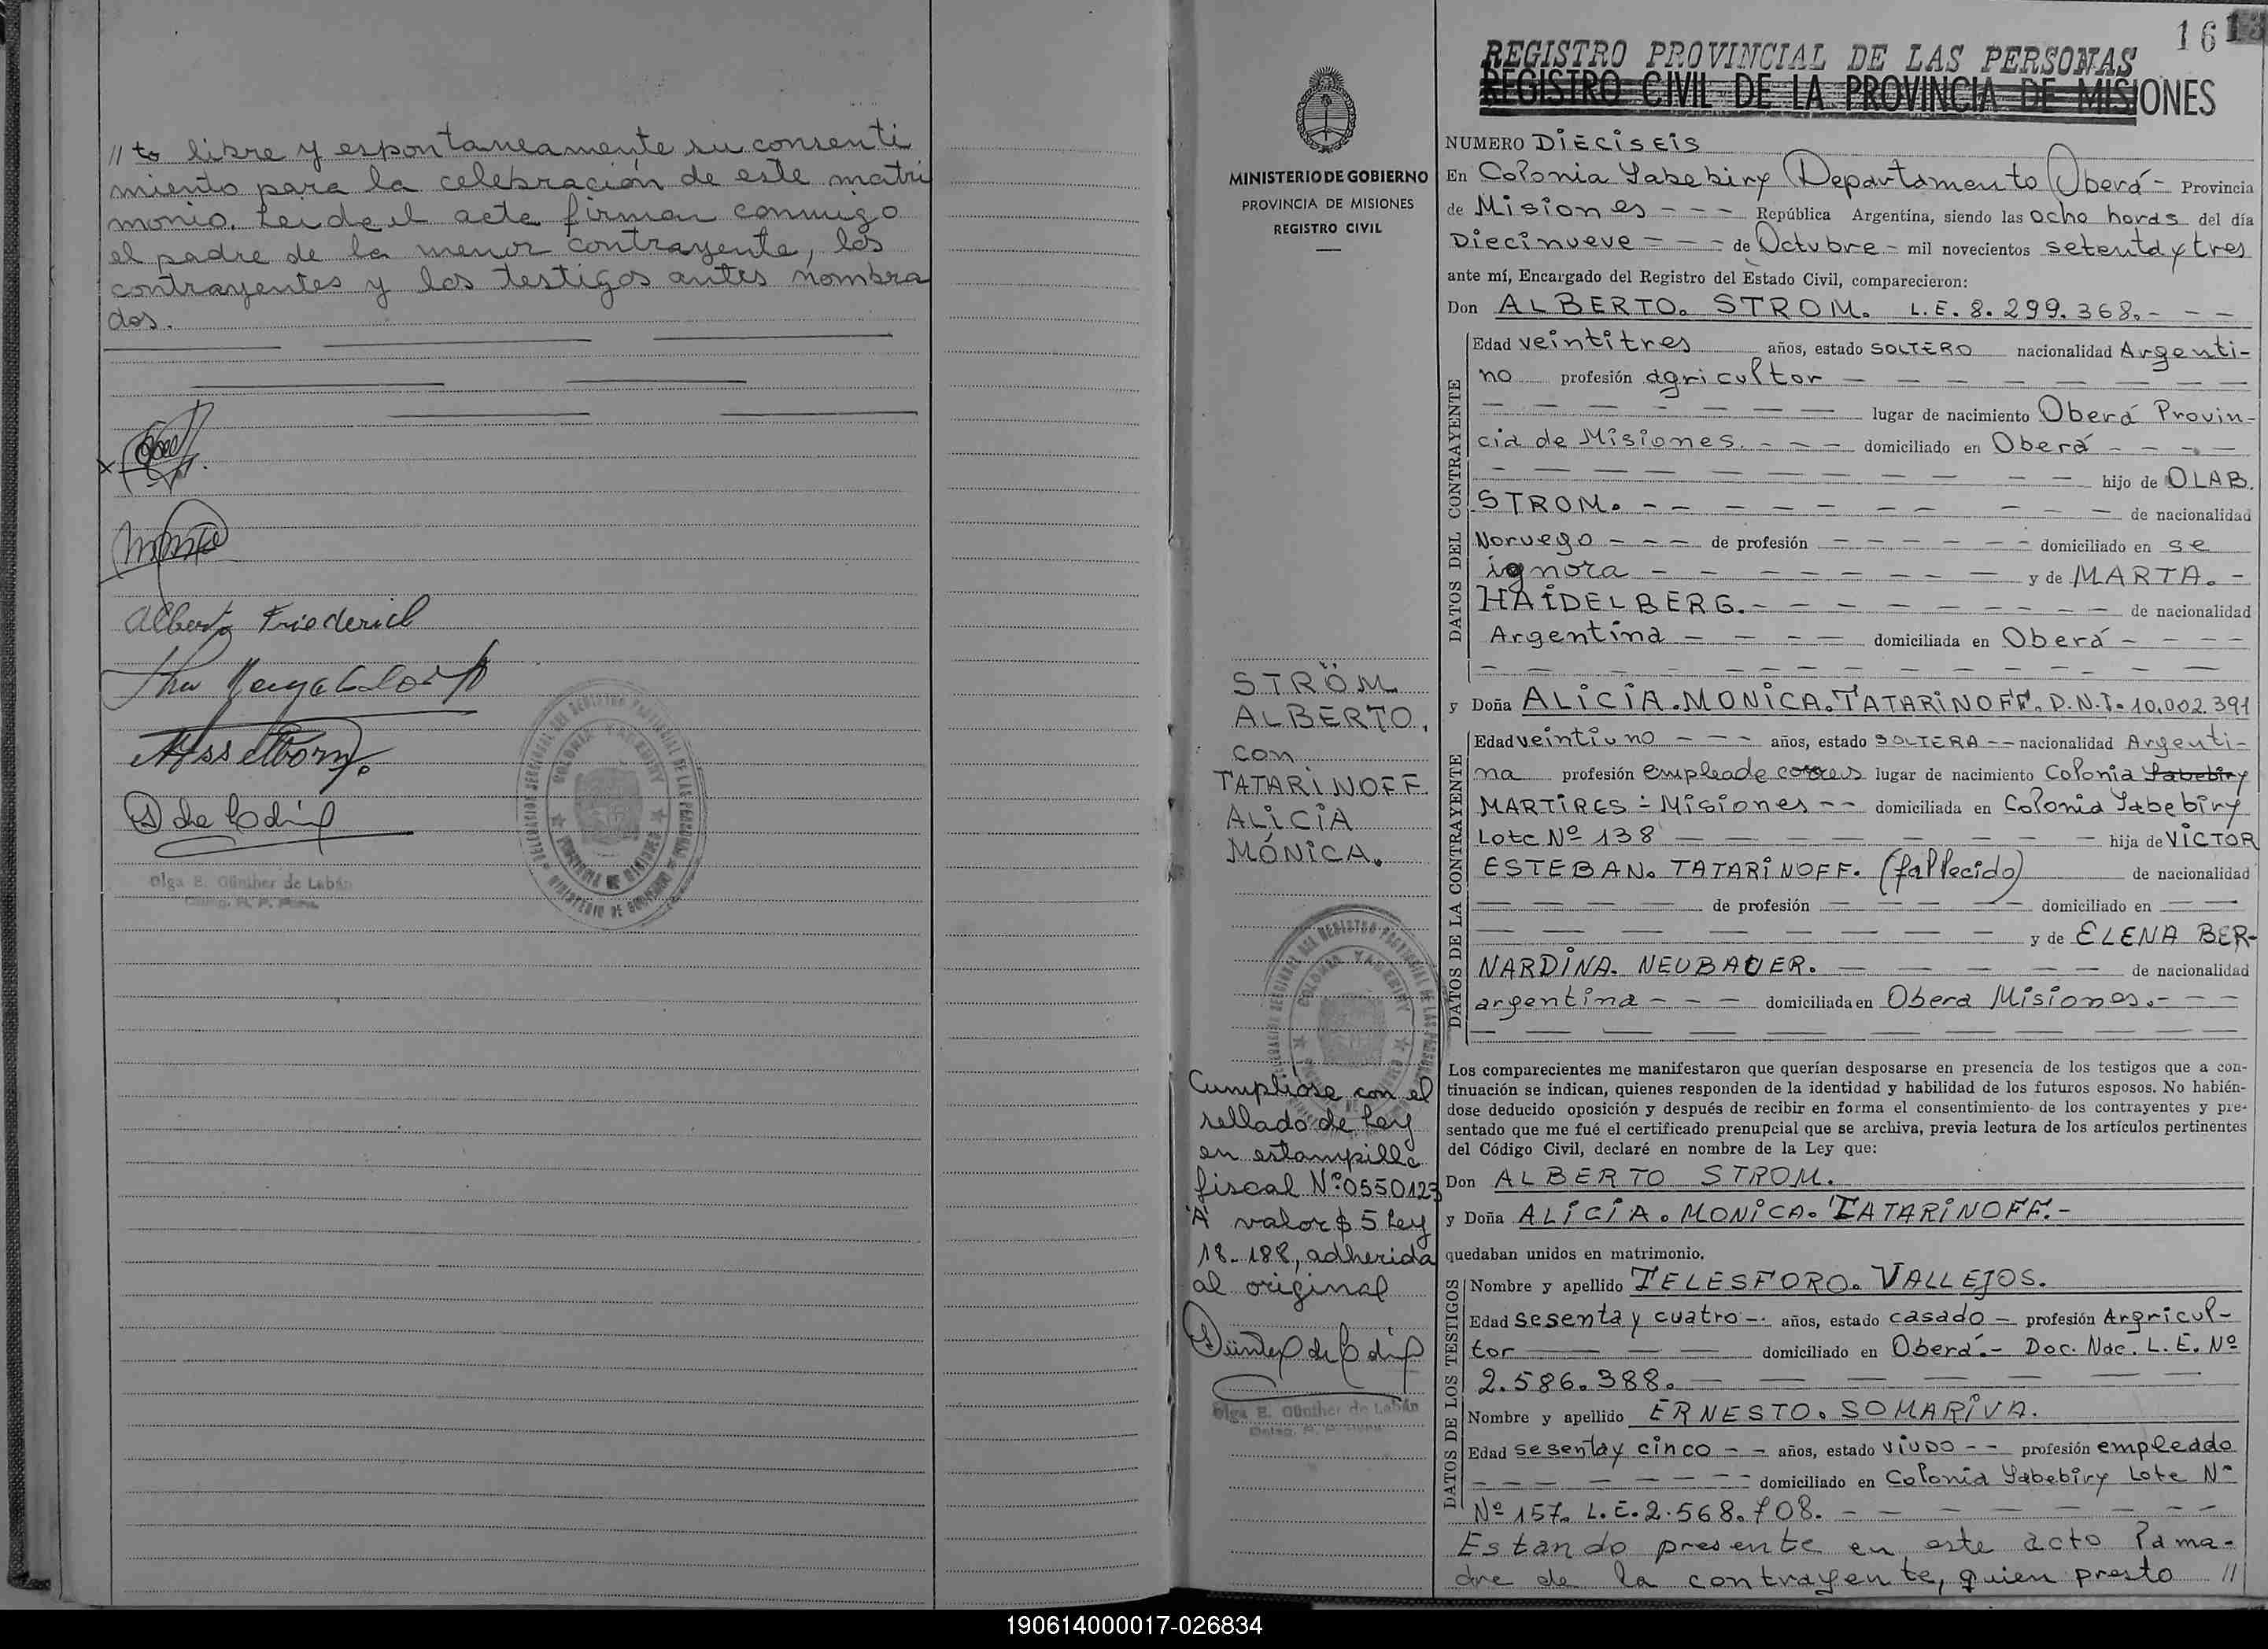 // to libre y espontaneamente su consenti
miento para la celebración de este matri
monio. Leida el acta firman conmigo
el padre de la menor contrayente, los
contrayentes y los testigos antes nombra
dos.
Alberto Friederich
Olga E. Günther de Labán
16
REGISTRO PROVINCIAL DE LAS PERSONAS
REGISTRO CIVIL DE LA PROVINCIA DE MISIONES
MINISTERIO DE GOBIERNO
PROVINCIA DE MISIONES
REGISTRO CIVIL
STRÖM
ALBERTO,
con
TATARINOFF
ALICIA
MÓNICA.
Cumpliose con el
sellado de Ley
en estampilla
fiscal Nº 0550123
"A" valor $ 5 Ley
18.188, adherida
al original
Olga E. Günther de Labán
NUMERO DIECISEIS
En Colonia Yabebiry Departamento Oberá - Provincia
de Misiones - - - República Argentina, siendo las ocho horas del día
Diecinueve - - - de Octubre - mil novecientos setenta y tres
ante mí, Encargado del Registro del Estado Civil, comparecieron:
Don ALBERTO. STROM. L.E. 8.299.368. - - -
DATOS DEL CONTRAYENTE
Edad veintitres años, estado SOLTERO nacionalidad Argenti-
no profesión agricultor - - - - - - -
- - - - - - - lugar de nacimiento Oberá Provin-
cia de Misiones. - - - domiciliado en Oberá - - - -
- - - - - - - - - - hijo de OLAB.
STROM. - - - - - - - - - - de nacionalidad
Noruego - - - de profesión - - - - - - domiciliado en se
ignora - - - - - - - - y de MARTA. -
HAIDELBERG. - - - - - - - - - de nacionalidad
Argentina - - - - domiciliada en Oberá - - - -
y Doña ALICIA. MONICA. TATARINOFF. D.N.I. 10.002.391
DATOS DE LA CONTRAYENTE
Edad veintiuno - - - años, estado SOLTERA - - nacionalidad Argenti-
na profesión empleade correos lugar de nacimiento Colonia Yabebiry
MARTIRES - Misiones - - domiciliada en Colonia Yabebiry
Lote Nº 138 - - - - - - - hija de VICTOR
ESTEBAN. TATARINOFF. (fallecido) de nacionalidad
- - - - de profesión - - - - domiciliado en - -
- - - - - - - - y de ELENA BER-
NARDINA. NEUBAUER. - - - - - de nacionalidad
argentina - - - domiciliada en Obera Misiones. - - -
Los comparecientes me manifestaron que querían desposarse en presencia de los testigos que a con-
tinuación se indican, quienes responden de la identidad y habilidad de los futuros esposos. No habién-
dose deducido oposición y después de recibir en forma el consentimiento de los contrayentes y pre-
sentado que me fué el certificado prenupcial que se archiva, previa lectura de los artículos pertinentes
del Código Civil, declaré en nombre de la Ley que:
Don ALBERTO STROM.
y Doña ALICIA. MONICA. TATARINOFF. -
quedaban unidos en matrimonio.
DATOS DE LOS TESTIGOS
Nombre y apellido TELESFORO. VALLEJOS.
Edad sesenta y cuatro -. años, estado casado - profesión Argricul-
tor - - - domiciliado en Oberá. - Doc. Nac. L.E. Nº
2.586.388. - - - - - - -
Nombre y apellido ERNESTO. SOMARIVA.
Edad sesentay cinco - - años, estado VIUDO - - profesión empleado
- - - - - - - - domiciliado en Colonia Yabebiry Lote Nº
Nº 157. L.E. 2.568.708. - - - - - - -
Estando presente en este acto la ma-
dre de la contrayente, quien presto //
190614000017-026834